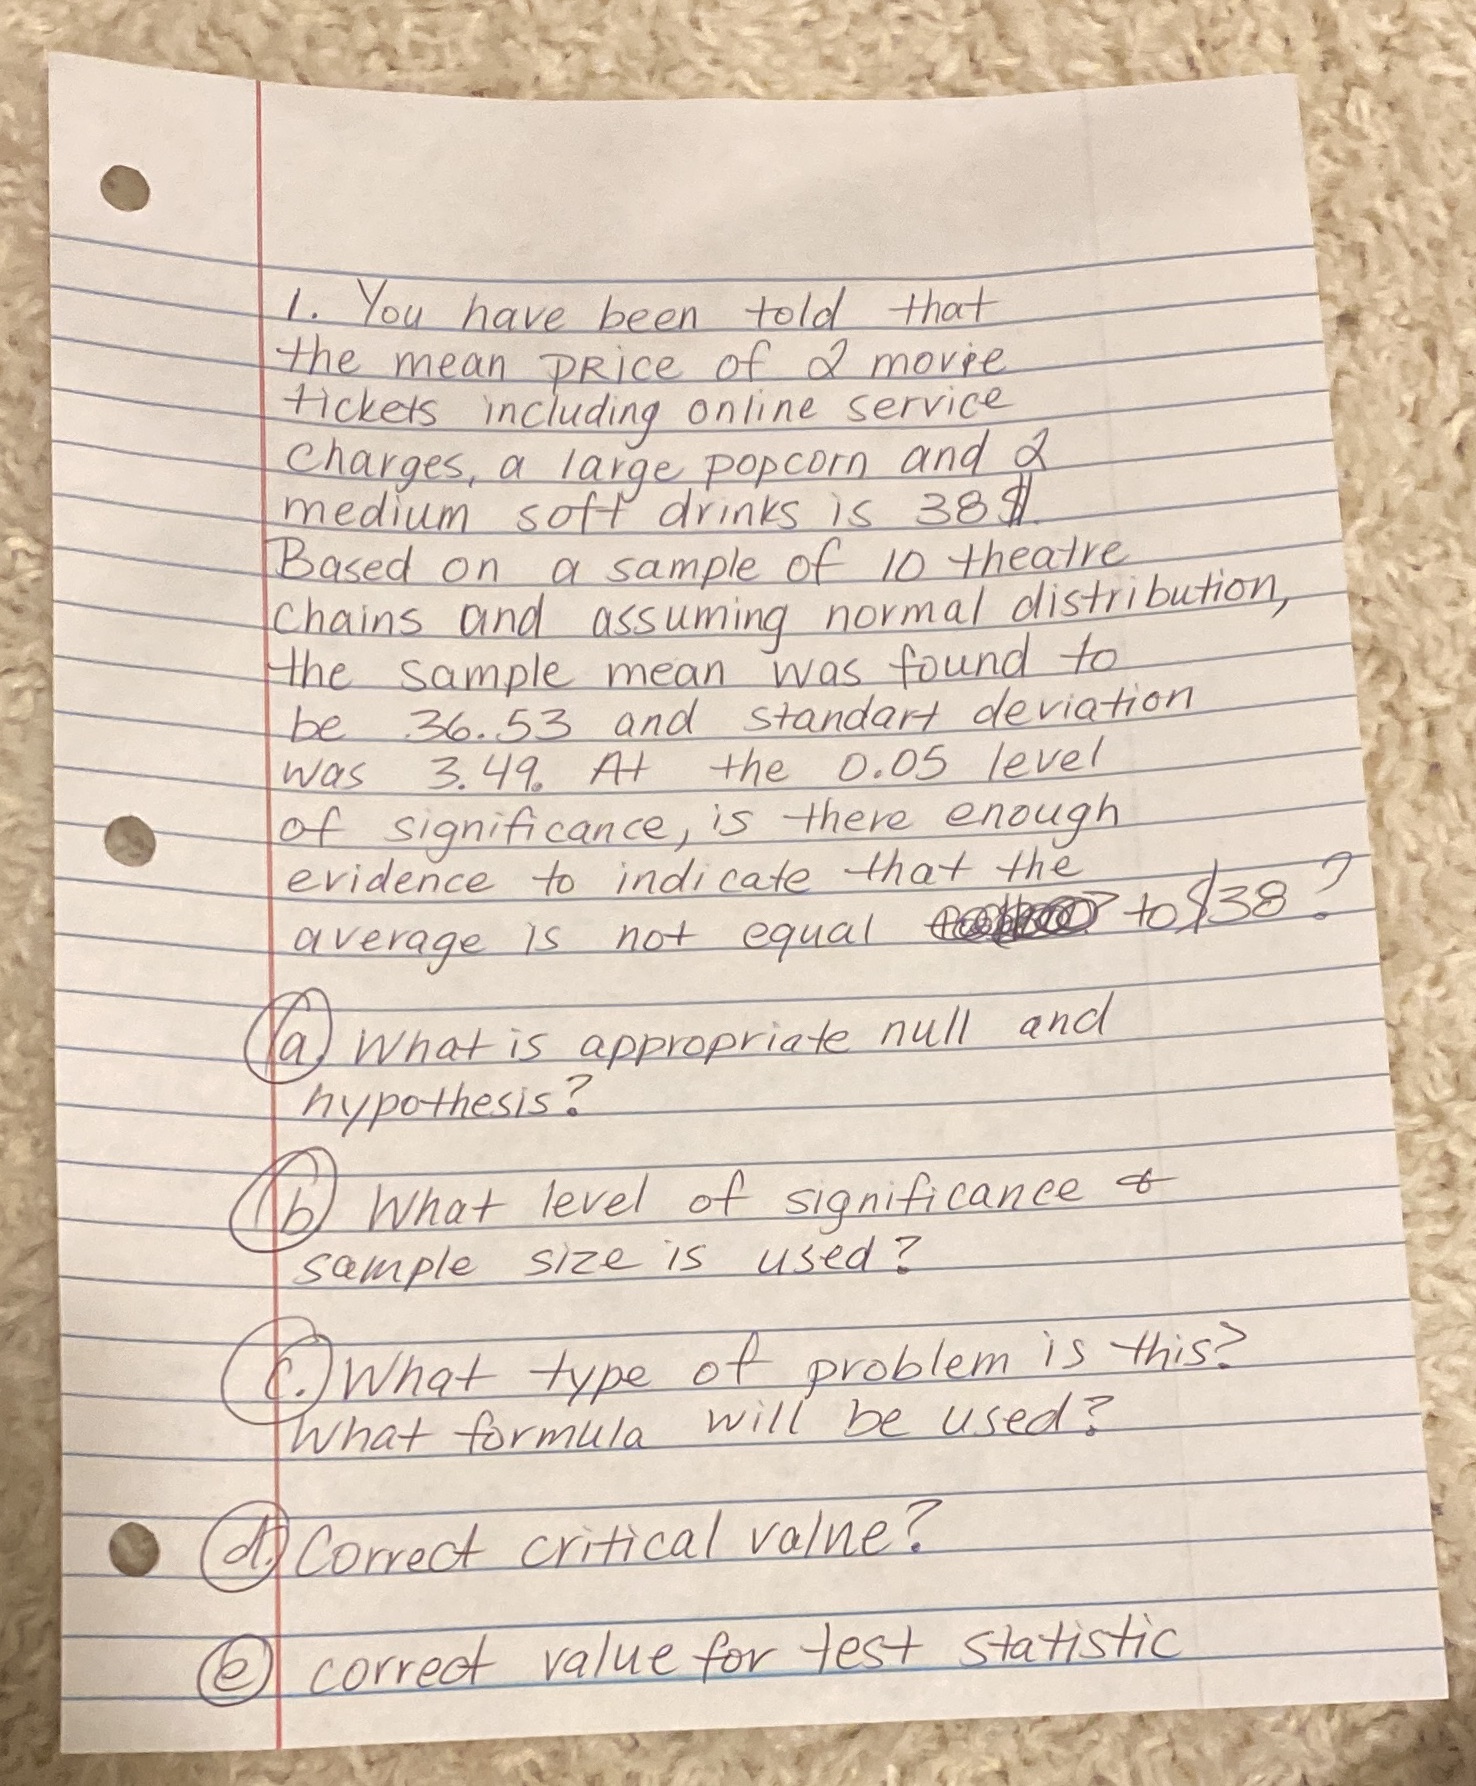 1. You have been told that
the mean PRice of 2 movie
tickets including online service
charges, a large popcorn and 2
medium soft drinks is 38$.
Based on a sample of 10 theatre
chains and assuming normal distribution,
the sample mean was found to
be 36.53 and standart deviation
was 3.49. At the 0.05 level
of significance, is there enough
evidence to indicate that the
average is not equal to $38?
a. What is appropriate null and
hypothesis?
b) What level of significance &
sample size is used?
c. What type of problem is this?
What formula will be used?
d. Correct critical value?
e) correct value for test statistic